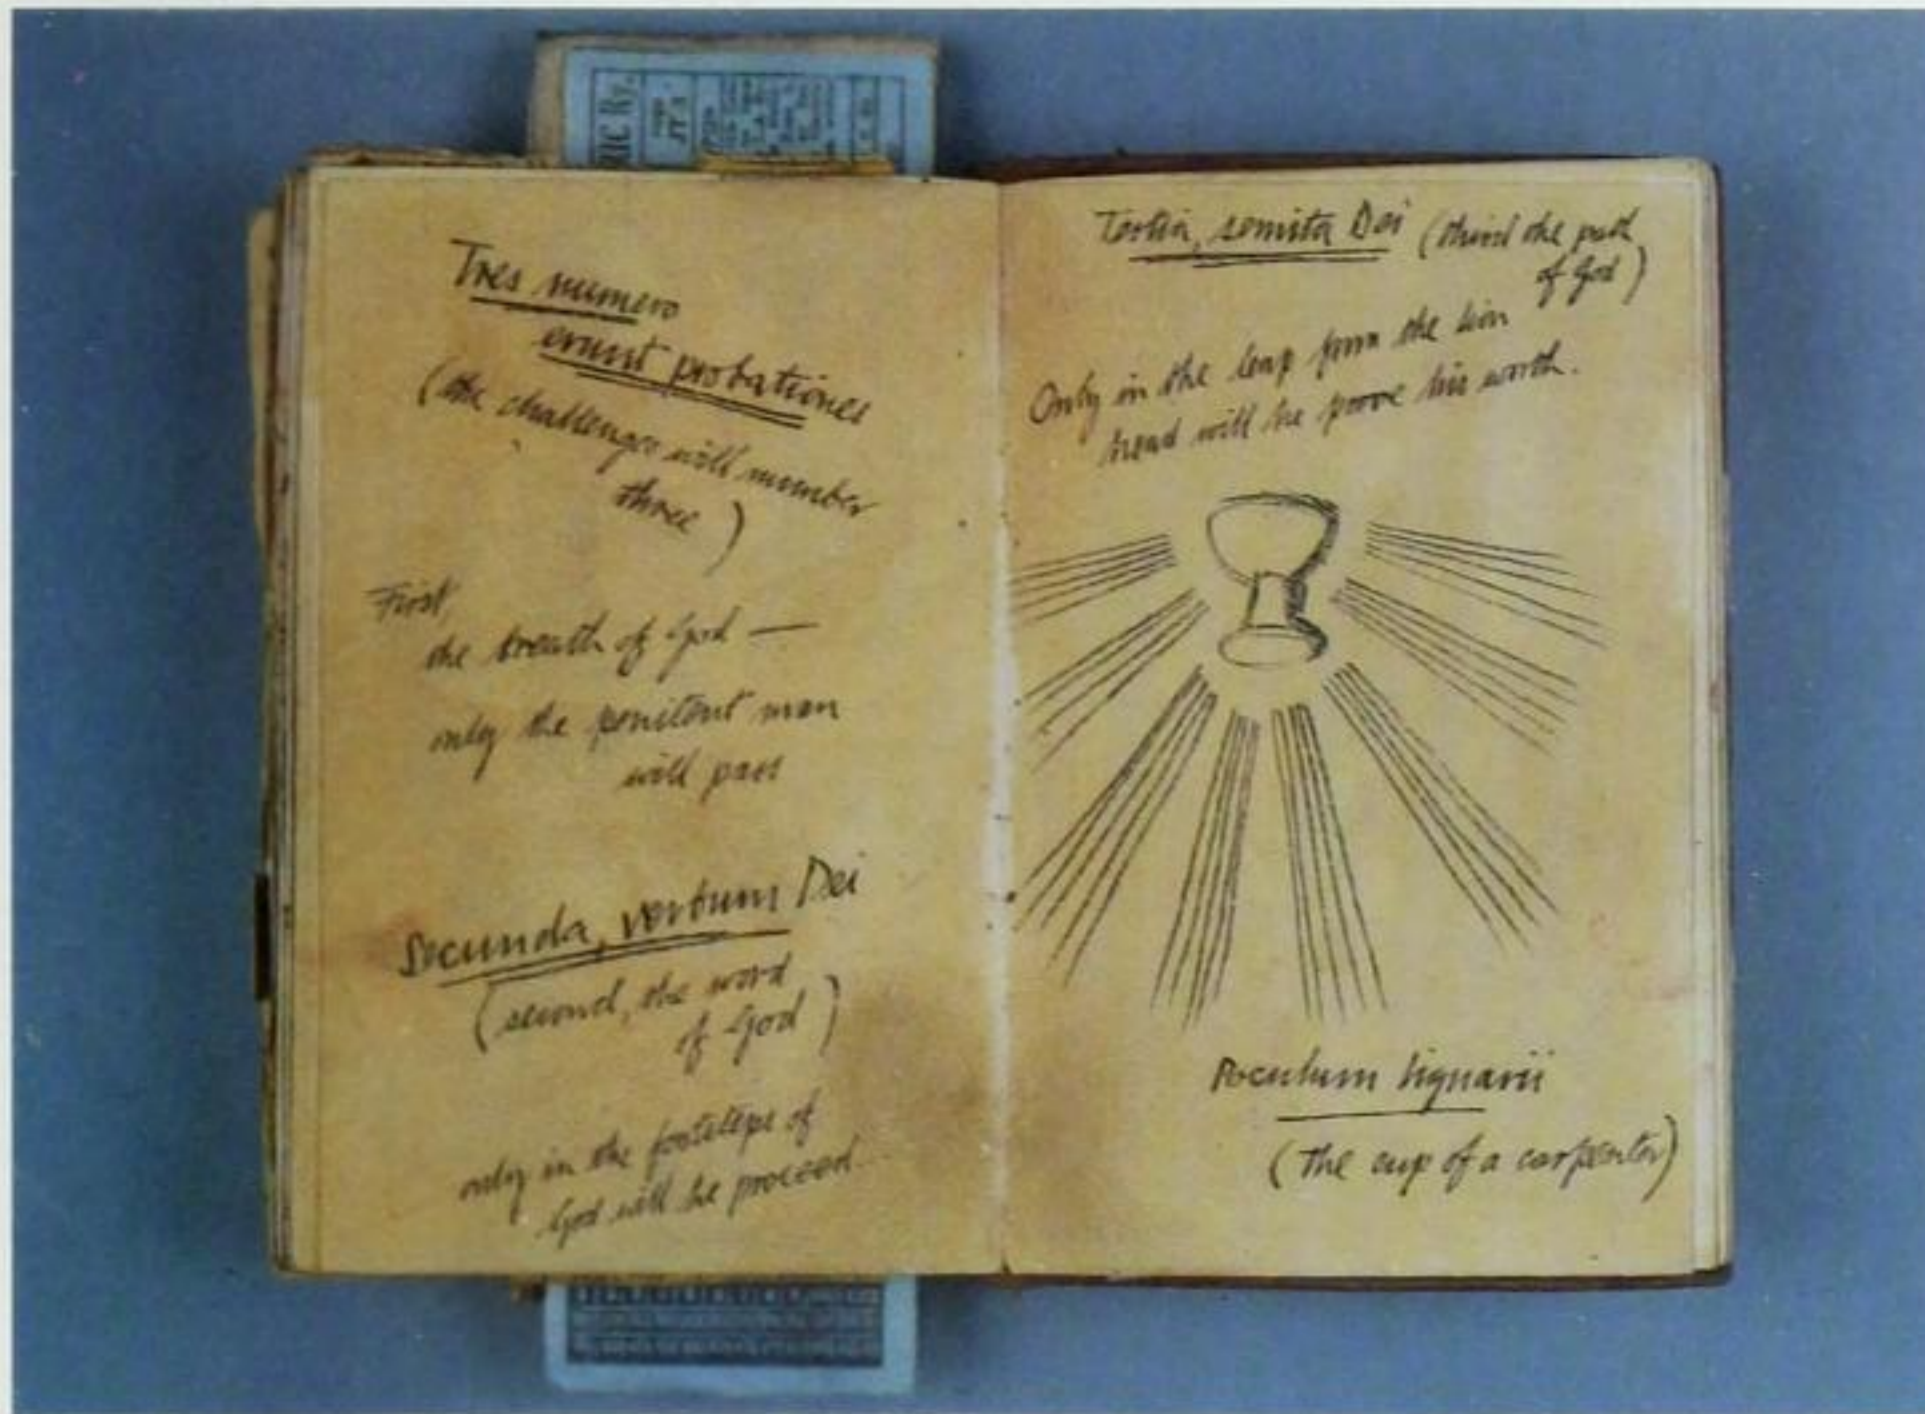 RIC Ry.
Tres numero
erunt probationes
(the challenges will number
three)
First,
the breath of God —
only the penitent man
will pass
Secunda, verbum Dei
(second, the word
of God)
only in the footsteps of
God will he proceed.
Tertia, semita Dei (third the path
of God)
Only in the leap from the lion
head will he prove his worth.
Poculum lignarii
(the cup of a carpenter)